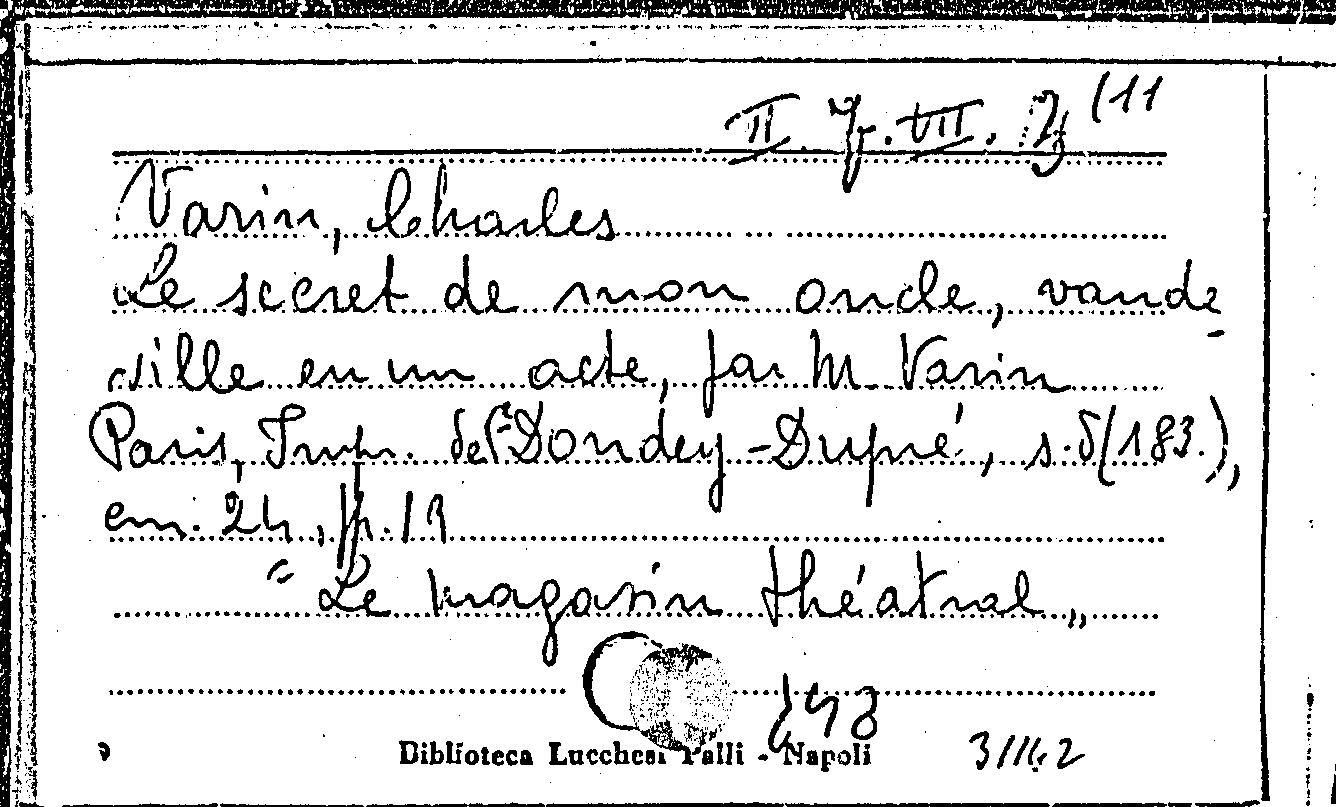 II. Fr. VII. 2 (11
Varin, Charles
Le secret de mon oncle, vaude-
ville en un acte, par M. Varin
Paris, Impr. de Dondey-Dupré, s.d(183.),
cm. 24, p. 19
"Le magasin théatral"
Biblioteca Lucchesi Palli - Napoli